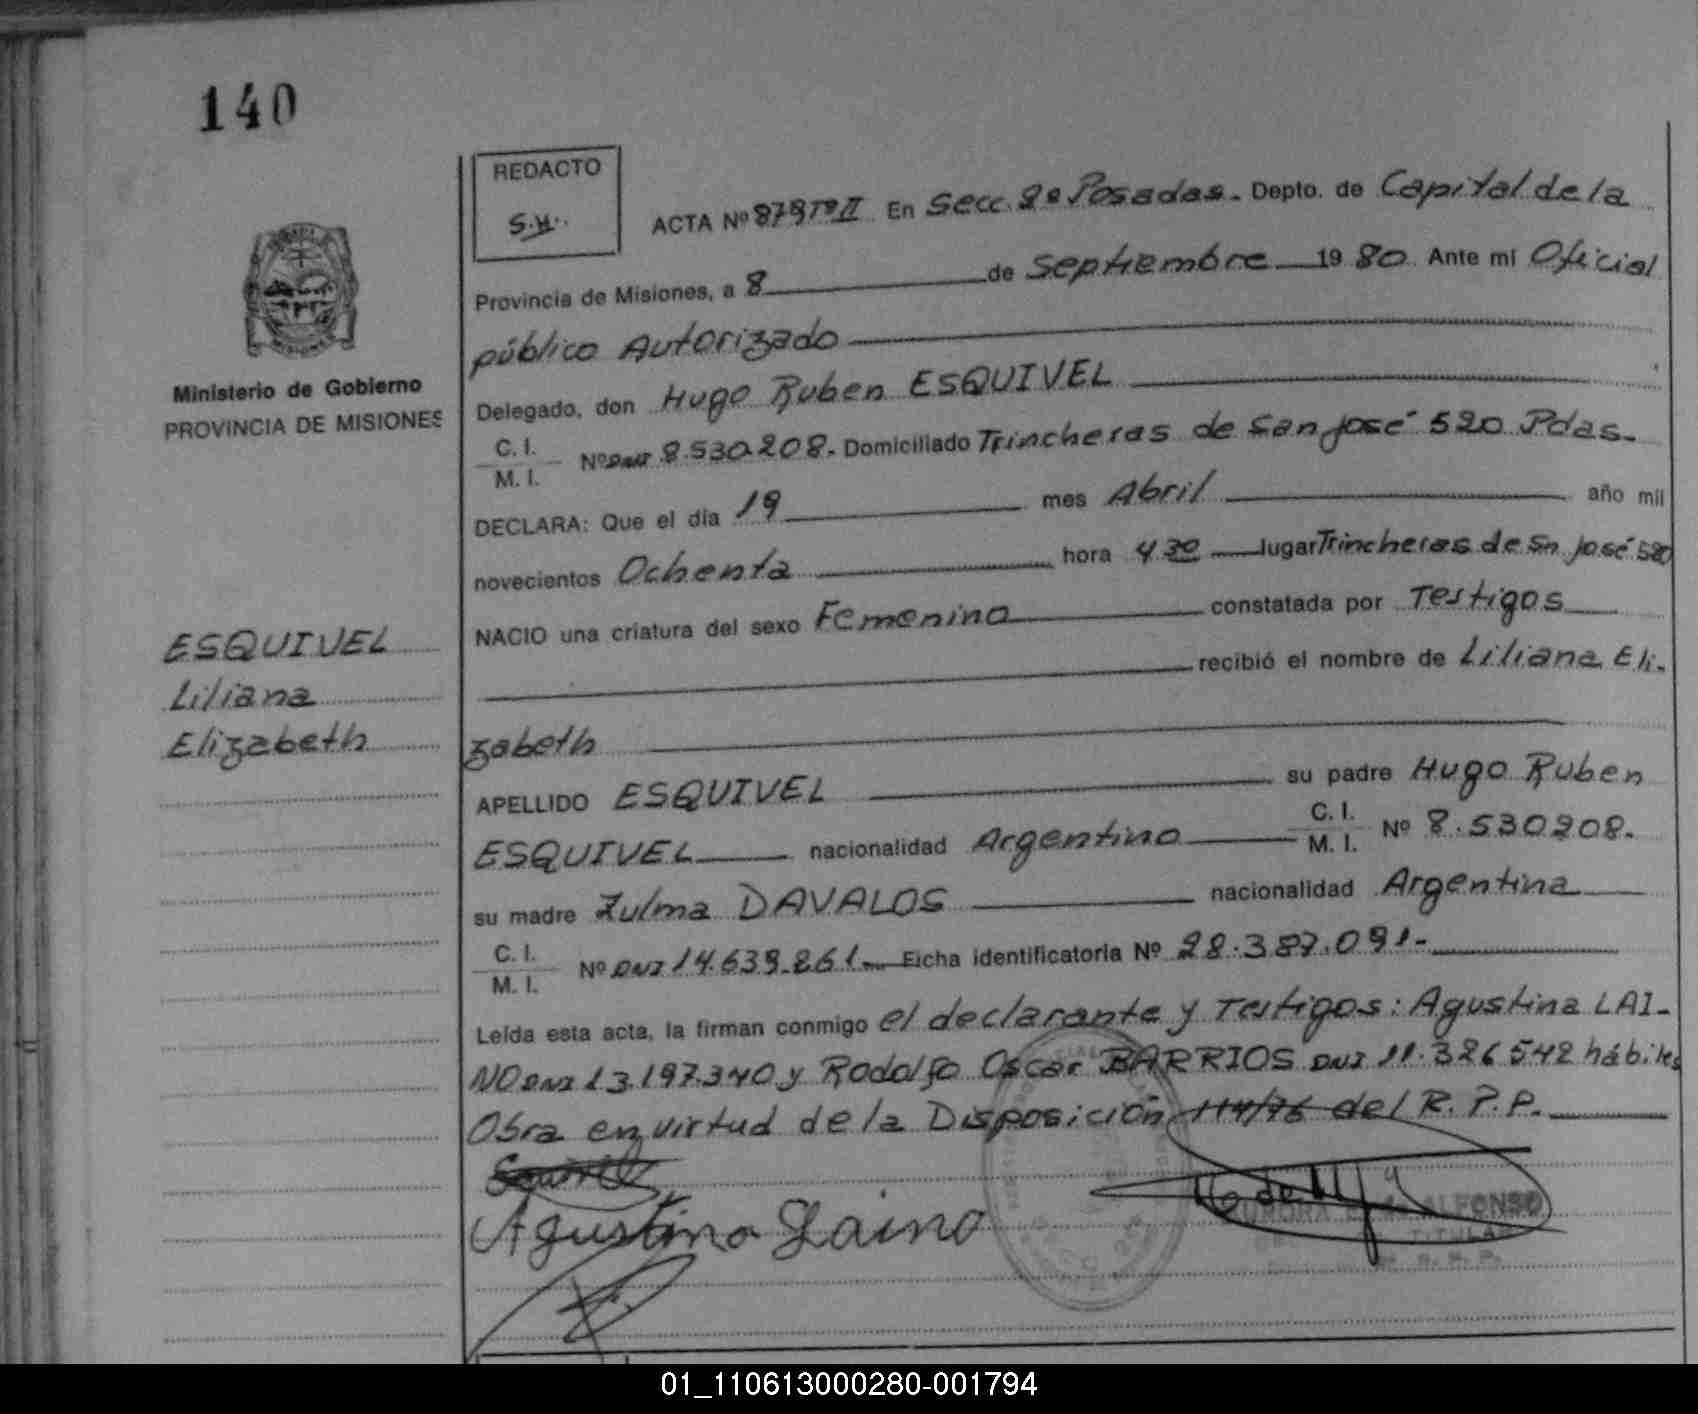 140
REDACTO
S.H.
ACTA Nº 879 Tº II En Secc. 2º Posadas. Depto. de Capital de la
Provincia de Misiones, a 8 de Septiembre 19 80 Ante mi Oficial
público Autorizado
Delegado, don Hugo Ruben ESQUIVEL
C. I.
M. I.
Nº DNI 8.530.208. Domiciliado Trincheras de San José 520 Pdas.
DECLARA: Que el día 19 mes Abril año mil
novecientos Ochenta hora 4.30 lugar Trincheras de Sn José 520
NACIO una criatura del sexo Femenino constatada por Testigos
recibió el nombre de Liliana Eli-
zabeth
APELLIDO ESQUIVEL su padre Hugo Ruben
ESQUIVEL nacionalidad Argentino C. I.
M. I. Nº 8.530208.
su madre Zulma DAVALOS nacionalidad Argentina
C. I.
M. I.
Nº DNI 14.639.861. Ficha identificatoria Nº 28.387.091.
Leída esta acta, la firman conmigo el declarante y Testigos: Agustina LAI-
NO DNI 13.197.340 y Rodolfo Oscar BARRIOS DNI 11.326542 hábiles
Obra en virtud de la Disposición 114/76 del R. P. P.
Agustina Laino
ALFONSO
TITULAR
R. P. P.
Ministerio de Gobierno
PROVINCIA DE MISIONES
ESQUIVEL
Liliana
Elizabeth
01_110613000280-001794